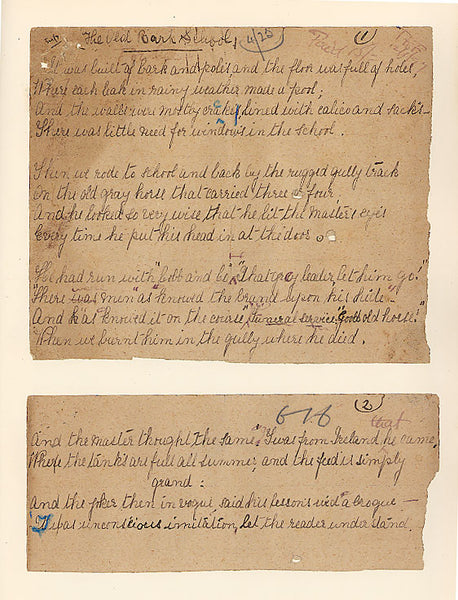 The Old Bark School,
4/25
(1)
It was built of bark and poles and the floor was full of holes,
Where each leak in rainy weather made a pool;
And the walls were mostly cracks, lined with calico and sacks—
There was little need for windows in the school.
Then we rode to school and back by the rugged gully track
On the old gray horse that carried three or four
And he looked so very wise, that he lit the master's eyes
Every time he put his head in at the door.
He had run with "Cobb and Co" "That grey leader, let him go!"
"There was men" "as knowed the brand upon his hide—"
And "as knowed it on the course" "Funeral service: Good old horse!"
When we burnt him in the gully where he died.
(2)
676
And the master thought the same. 'Twas from Ireland he came,
Where the tanks are full all summer, and the feed is simply
grand:
And the joker then in vogue, said his lessons wid a brogue —
'Twas unconscious imitation, let the reader understand.